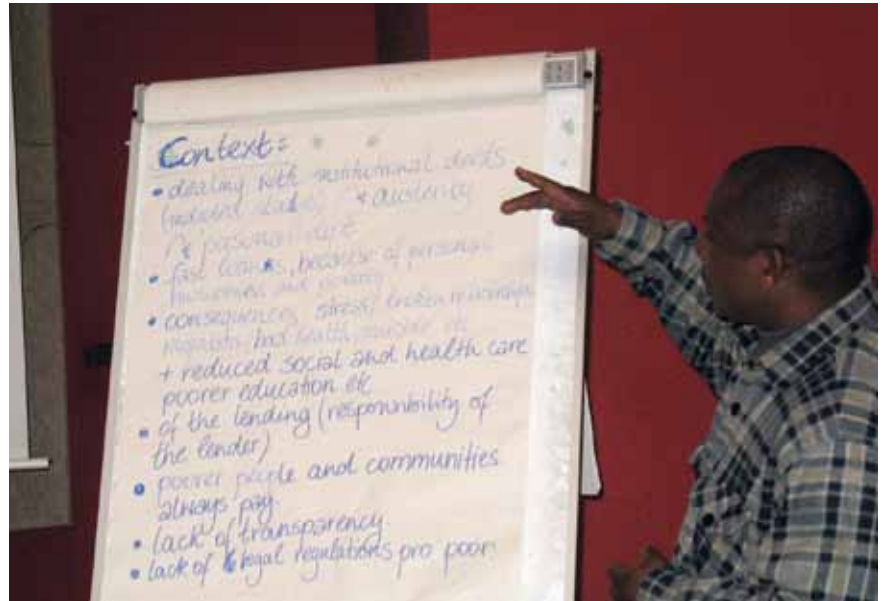 Context:
• dealing with institutional debts
+ austerity
& personal debt
• fast loans, because of personal
• consequences stress, broken relationships,
bad health, suicide etc
+ reduced social and health care
poorer education etc
• of the lending (responsibility of
the lender)
• poorer people and communities
always pay.
• lack of transparency.
• lack of legal regulations pro poor